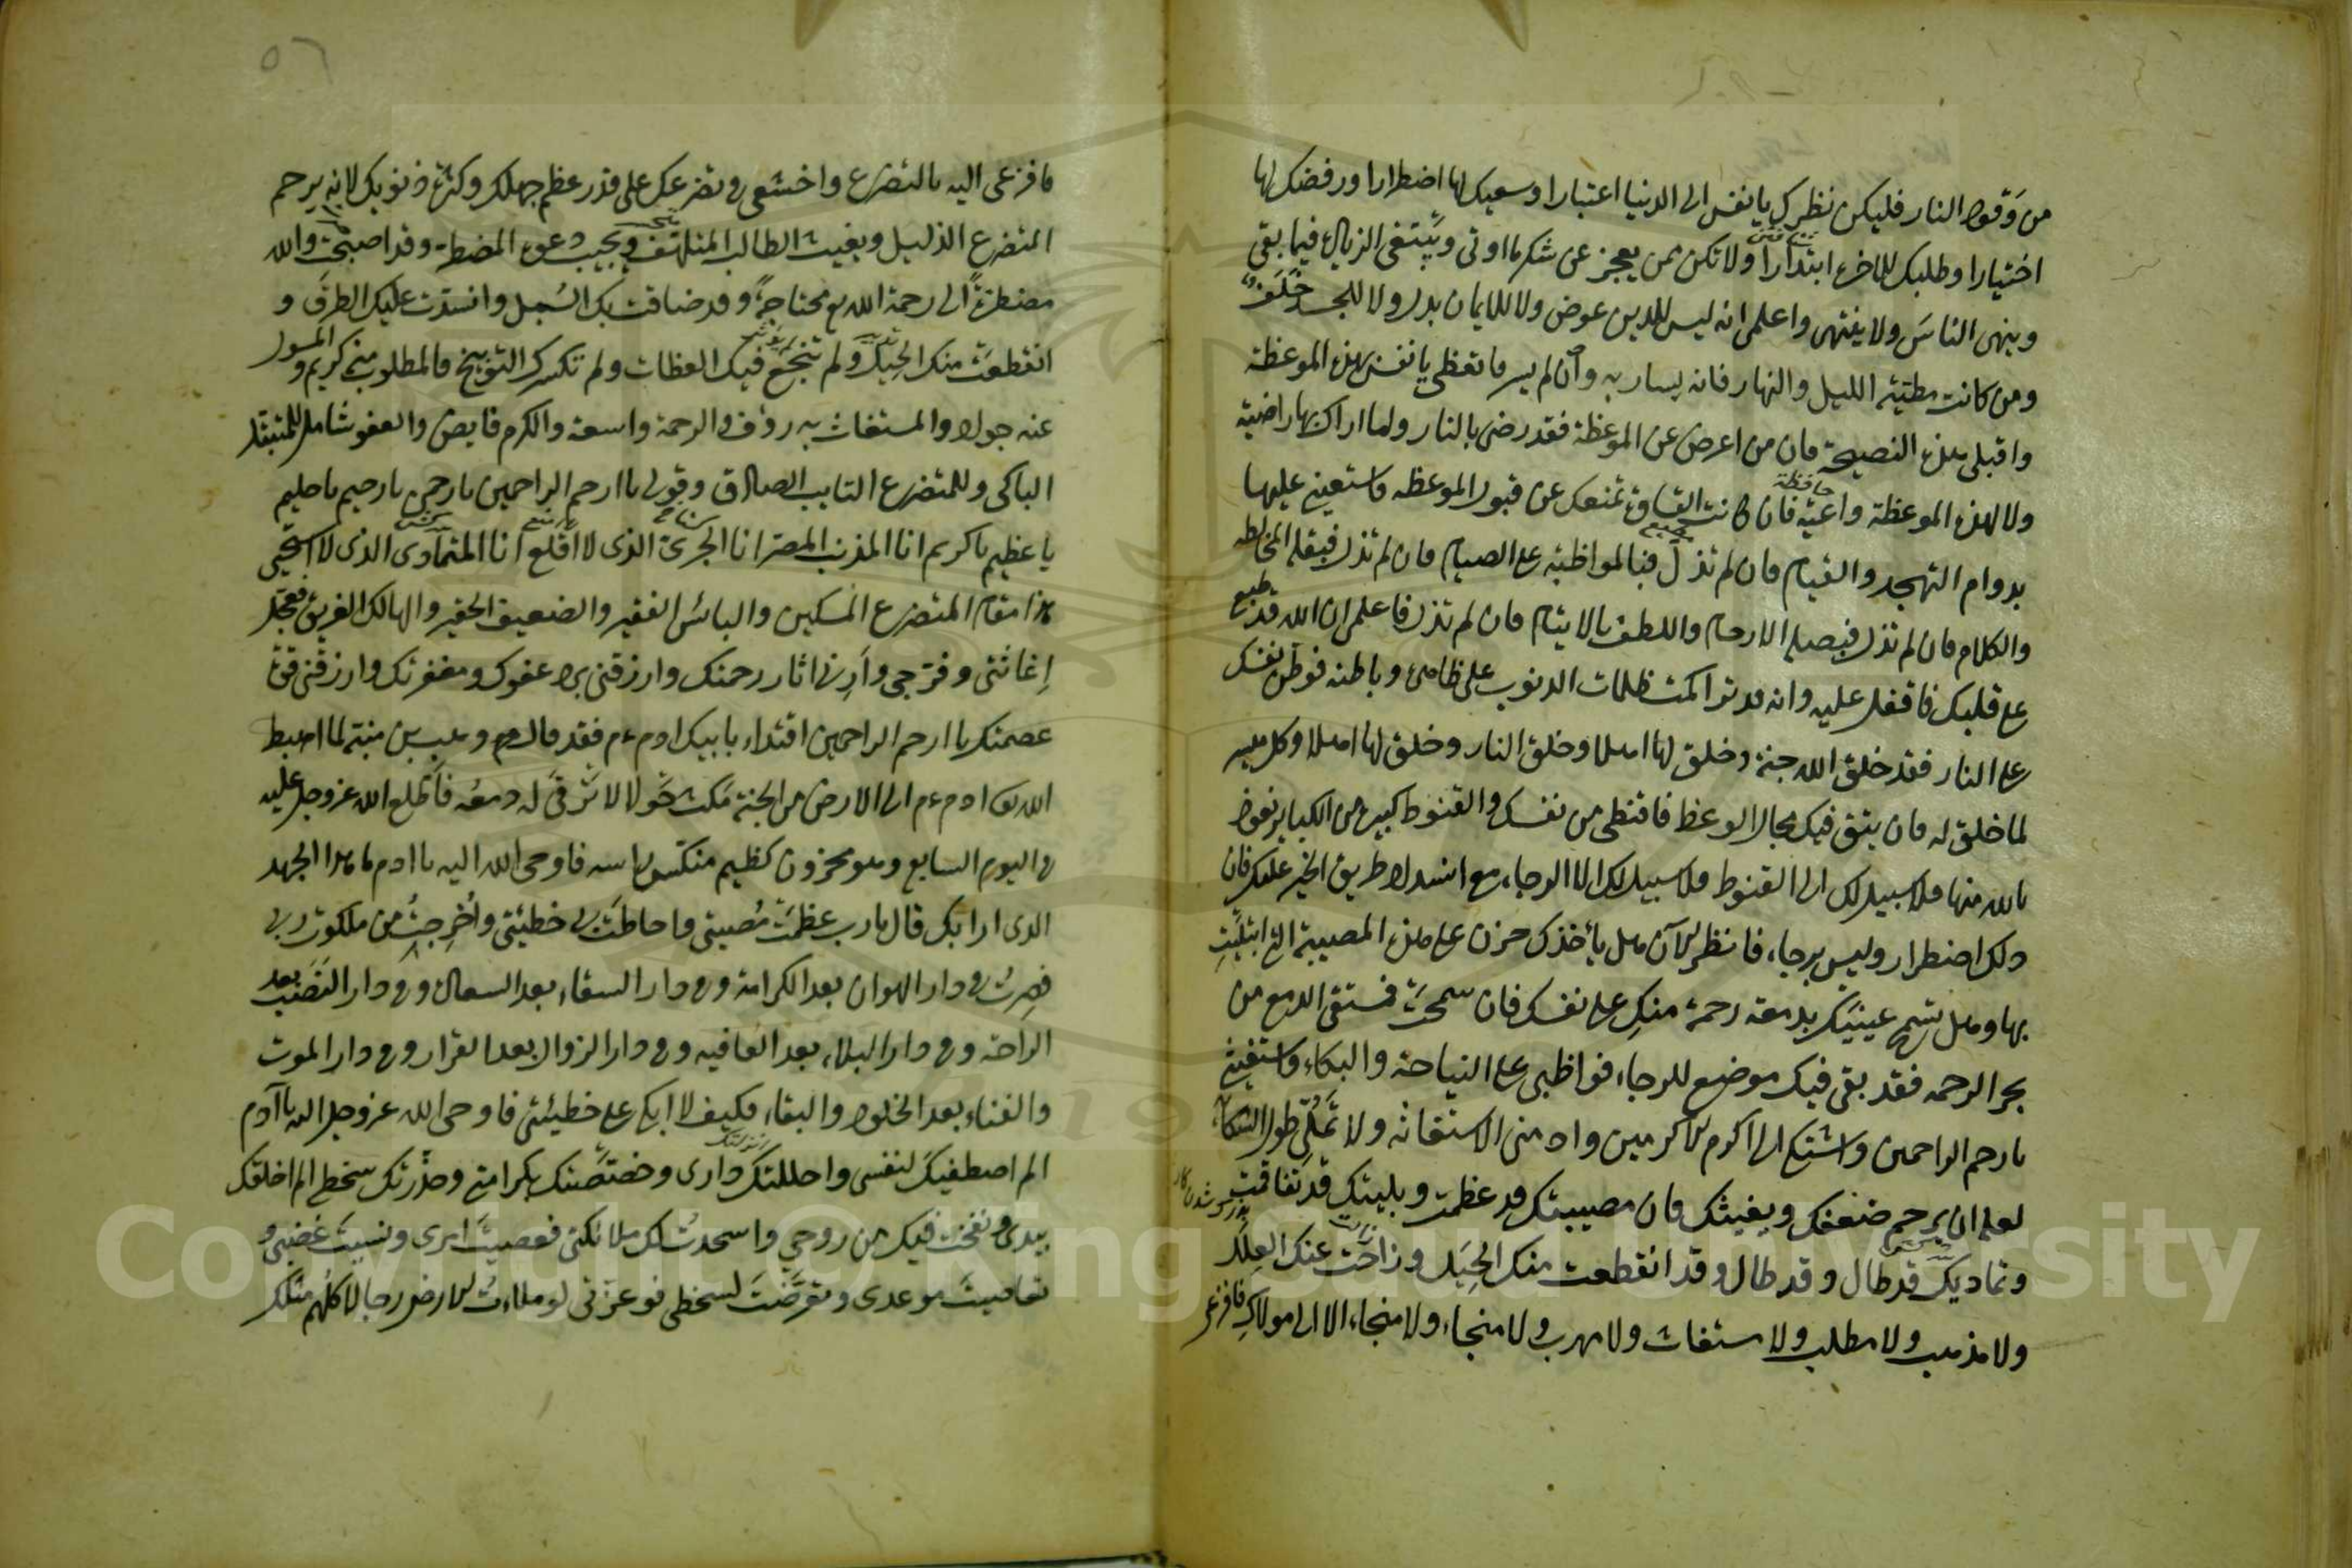 من وقود النار فليكن نظرك يا نفس الى الدنيا اعتبارا وسعيك لها اضطرارا ورفضك لها
اختيارا وطلبك للاخرة ابتدارا ولا تكن ممن يعجز عن شكر ما اوتى ويبتغى الزيادة فيما بقى
وينهى الناسَ ولا ينتهى واعلمى انه ليس للدين عوض ولا للايمان بدل ولا للجسد خَلَف
ومن كانت مطيّته الليل والنهار فانه يسار به وان لم يسر فاتعظى يا نفس بهذه الموعظة
واقبلى هذه النصيحة فان من اعرض عن الموعظة فقد رضى بالنار وما اراك بها راضية
ولا لهذه الموعظة واعية فان كانت القساوة تمنعك عن قبول الموعظه فاستعينى عليها
بدوام التهجد والقيام فان لم تزل فبالمواظبة على الصيام فان لم تزل فبقلة المخالطه
والكلام فان لم تزل فبصلة الارحام واللطف بالايتام فان لم تزل فاعلمى ان الله قد طبع
على قلبك فاقفل عليه وانه قد تراكمت ظلمات الذنوب على ظاهره وباطنه فوطنى نفسك
على النار فقد خلق الله جنة وخلق لها اهلا وخلق النار وخلق لها اهلا وكل ميسر
لما خلق له فان بقى فيك مجال الوعظ فاقنطى من نفسك والقنوط كبيرة من الكبائر نعوذ
بالله منها فلا سبيل لك الى القنوط فلا سبيل لك الا الرجاء مع انسداد طريق الخير عليك فان
ذلك اضطرار وليس برجاء فانظرى الآن هل يأخذك حزن على هذه المصيبة التى ابتليتِ
بها وهل تسمح عينيك بدمعة رحمة منكِ على نفسك فان سمحت فمستقى الدمع من
بحر الرحمه فقد بقى فيك موضع للرجاء فواظبى على النياحة والبكاء واستغيثى
بارحم الراحمين واشتكى الى اكرم الاكرمين وادمنى الاستغاثه ولا تملّى طول الشكاية
لعله ان يرحم ضعفك ويغيثك فان مصيبتك قد عظمت وبليتك قد تفاقمت
وتماديك قد طال وقد طال وقد انقطعت منك الحِيَل وزاحَت عنك العِلَل
ولا مذهب ولا مطلب ولا مستغاث ولا مهرب ولا منجاء ولا منجاء الا الى مولاكِ فافزعى
٥٦
فافزعى اليه بالتضرع واخشعى فى تضرعك على قدر عظم جهلك وكثرة ذنوبك لانه يرحم
المتضرع الذليل ويغيث الطالب المتلهف ويجيب دعوة المضطر وقد اصبحت والله
مضطرّة الى رحمة الله تع محتاجة وقد ضاقت بك السُبل وانسدّت عليك الطرق و
انقطعت منك الحِيَل ولم تنجع فيك العظات ولم تكسرك التوبيخ فالمطلوب منه كريم والمسول
عنه جواد والمستغاث به رؤف والرحمة واسعة والكرم فايض والعفو شامل للمبتهل
الباكى وللمتضرع التايب الصادق وقولى يا ارحم الراحمين يا رحمن يا رحيم يا حليم
يا عظيم يا كريم انا المذنب المصر انا الجرئ الذى لا اقلع انا المتمادى الذى لا استحيى
هذا مقام المتضرع المسكين والبائس الفقير والضعيف الحقير والهالك الغريق فعجّل
اِغاثتى وفرّجى وارِنى اثار رحمتك وارزقنى برد عفوك ومغفرتك وارزقنى قوة
عصمتك يا ارحم الراحمين اقتداء بابيك ادم ءم فقد قال وهب بن منبّه لما اهبط
الله تع ادم ءم الى الارض من الجنة مكث حَولا لا ترقى له دمعه فاطلع الله عزوجل عليه
فى اليوم السابع وهو محزون كظيم منكّس راسه فاوحى الله اليه يا ادم ما هذا الجهد
الذى ارا بك قال يا رب عظمَت مُصيبتى واحاطت بى خطيئتى واُخرِجتُ من ملكوت ربى
فصِرتُ فى دار الهوان بعد الكرامة وفى دار الشقاء بعد السعادة وفى دار النَصَب بعد
الراحة وفى دار البلاء بعد العافيه وفى دار الزوال بعد القرار وفى دار الموت
والفناء بعد الخلود والبقاء فكيف لا ابكى على خطيئتى فاوحى الله عزوجل اليه يا آدم
الم اصطفيك لنفسى واحللتك دارى وخصّصتك بكرامتى وحذّرتك سخطى الم اخلقك
بيدى ونفخت فيك من روحى واسجدت لك ملائكتى فعصيتَ امرى ونسيتَ غضبى و
تعاميتَ موعدى وتعرّضتَ لسخطى فوعزّتى لو ملاءتُ الارض رجالا كلهم مثلك
Copyright © King Saud University